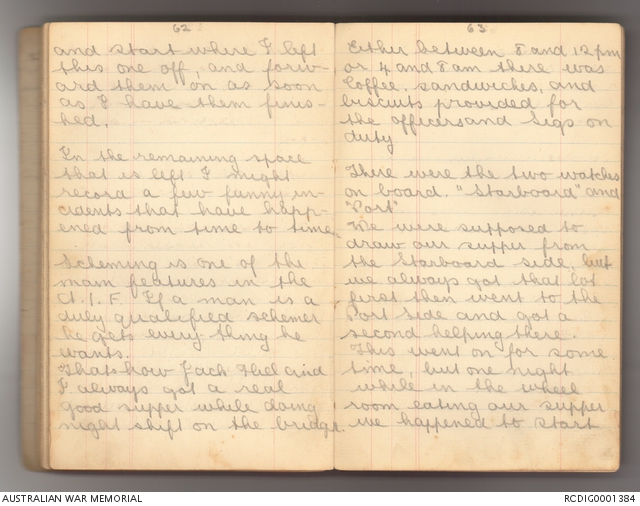 62
and start where I left
this one off, and forw-
ard them on as soon
as I have them finis-
hed.
In the remaining space
that is left I might
record a few funny in-
cidents that have happ-
ened from time to time.
Scheming is one of the
main features in the
A.I.F. If a man is a
duly qualified schemer
he gets every thing he
wants.
Thats how Jack and
I always got a real
good supper while doing
night shift on the bridge.
63
Either between 8 and 12 pm
or 4 and 8 am there was
Coffee, sandwiches, and
biscuits provided for
the officers and Sigs on
duty
There were the two watches
on board. "Starboard" and
"Port"
We were supposed to
draw our supper from
the Starboard side, but
we always got that lot
first then went to the
Port side and got a
second helping there.
This went on for some
time but one night
while in the wheel
room eating our supper
we happened to start
AUSTRALIAN WAR MEMORIAL
RCDIG0001384